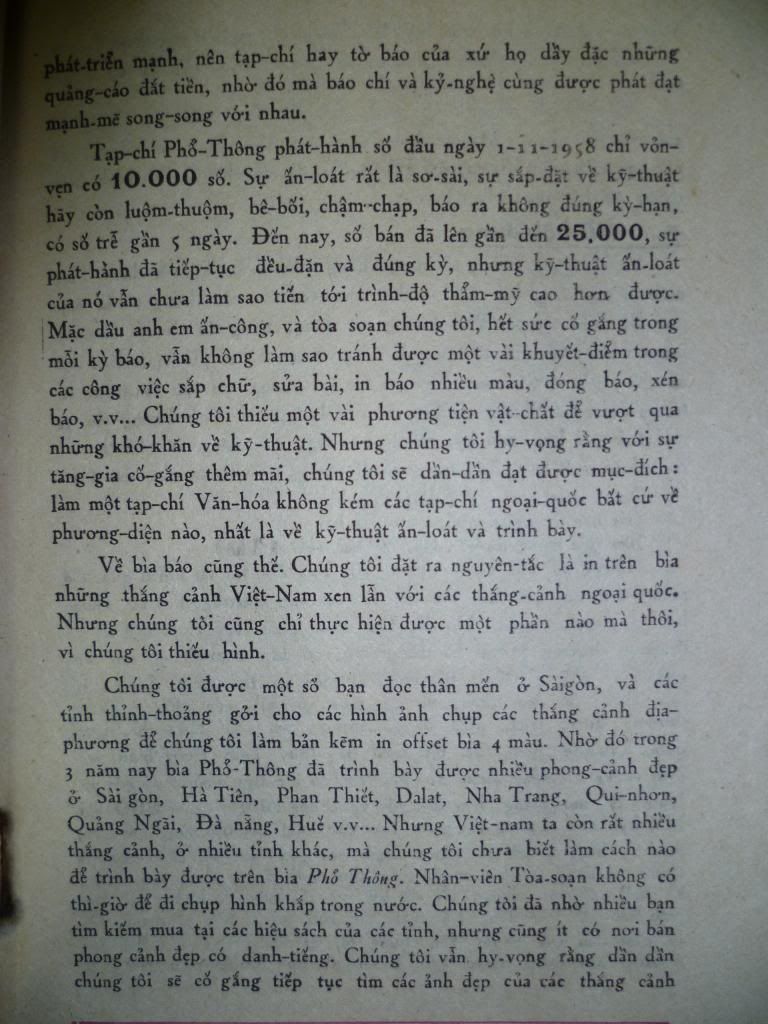 phát-triển mạnh, nên tạp-chí hay tờ báo của xứ họ dầy đặc những
quảng-cáo đắt tiền, nhờ đó mà báo chí và kỷ-nghệ cùng được phát đạt
mạnh-mẽ song-song với nhau.
Tạp-chí Phổ-Thông phát-hành số đầu ngày 1-11-1958 chỉ vỏn-
vẹn có 10.000 số. Sự ấn-loát rất là sơ-sài, sự sắp-đặt về kỹ-thuật
hãy còn luộm-thuộm, bê-bối, chậm-chạp, báo ra không đúng kỳ-hạn,
có số trễ gần 5 ngày. Đến nay, số bán đã lên gần đến 25.000, sự
phát-hành đã tiếp-tục đều-đặn và đúng kỳ, nhưng kỹ-thuật ấn-loát
của nó vẫn chưa làm sao tiến tới trình-độ thẩm-mỹ cao hơn được.
Mặc dầu anh em ấn-công, và tòa soạn chúng tôi, hết sức cố gắng trong
mỗi kỳ báo, vẫn không làm sao tránh được một vài khuyết-điểm trong
các công việc sắp chữ, sửa bài, in báo nhiều màu, đóng báo, xén
báo, v.v... Chúng tôi thiếu một vài phương tiện vật-chất để vượt qua
những khó-khăn về kỹ-thuật. Nhưng chúng tôi hy-vọng rằng với sự
tăng-gia cố-gắng thêm mãi, chúng tôi sẽ dần-dần đạt được mục-đích:
làm một tạp-chí Văn-hóa không kém các tạp-chí ngoại-quốc bất cứ về
phương-diện nào, nhất là về kỹ-thuật ấn-loát và trình bày.
Về bìa báo cũng thế. Chúng tôi đặt ra nguyên-tắc là in trên bìa
những thắng cảnh Việt-Nam xen lẫn với các thắng-cảnh ngoại quốc.
Nhưng chúng tôi cũng chỉ thực hiện được một phần nào mà thôi,
vì chúng tôi thiếu hình.
Chúng tôi được một số bạn đọc thân mến ở Sàigòn, và các
tỉnh thỉnh-thoảng gởi cho các hình ảnh chụp các thắng cảnh địa-
phương để chúng tôi làm bản kẽm in offset bìa 4 màu. Nhờ đó trong
3 năm nay bìa Phổ-Thông đã trình bày được nhiều phong-cảnh đẹp
ở Sài gòn, Hà Tiên, Phan Thiết, Dalat, Nha Trang, Qui-nhơn,
Quảng Ngãi, Đà nẵng, Huế v.v... Nhưng Việt-nam ta còn rất nhiều
thắng cảnh, ở nhiều tỉnh khác, mà chúng tôi chưa biết làm cách nào
để trình bày được trên bìa Phổ Thông. Nhân-viên Tòa-soạn không có
thì-giờ để đi chụp hình khắp trong nước. Chúng tôi đã nhờ nhiều bạn
tìm kiếm mua tại các hiệu sách của các tỉnh, nhưng cũng ít có nơi bán
phong cảnh đẹp có danh-tiếng. Chúng tôi vẫn hy-vọng rằng dần dần
chúng tôi sẽ cố gắng tiếp tục tìm các ảnh đẹp của các thắng cảnh